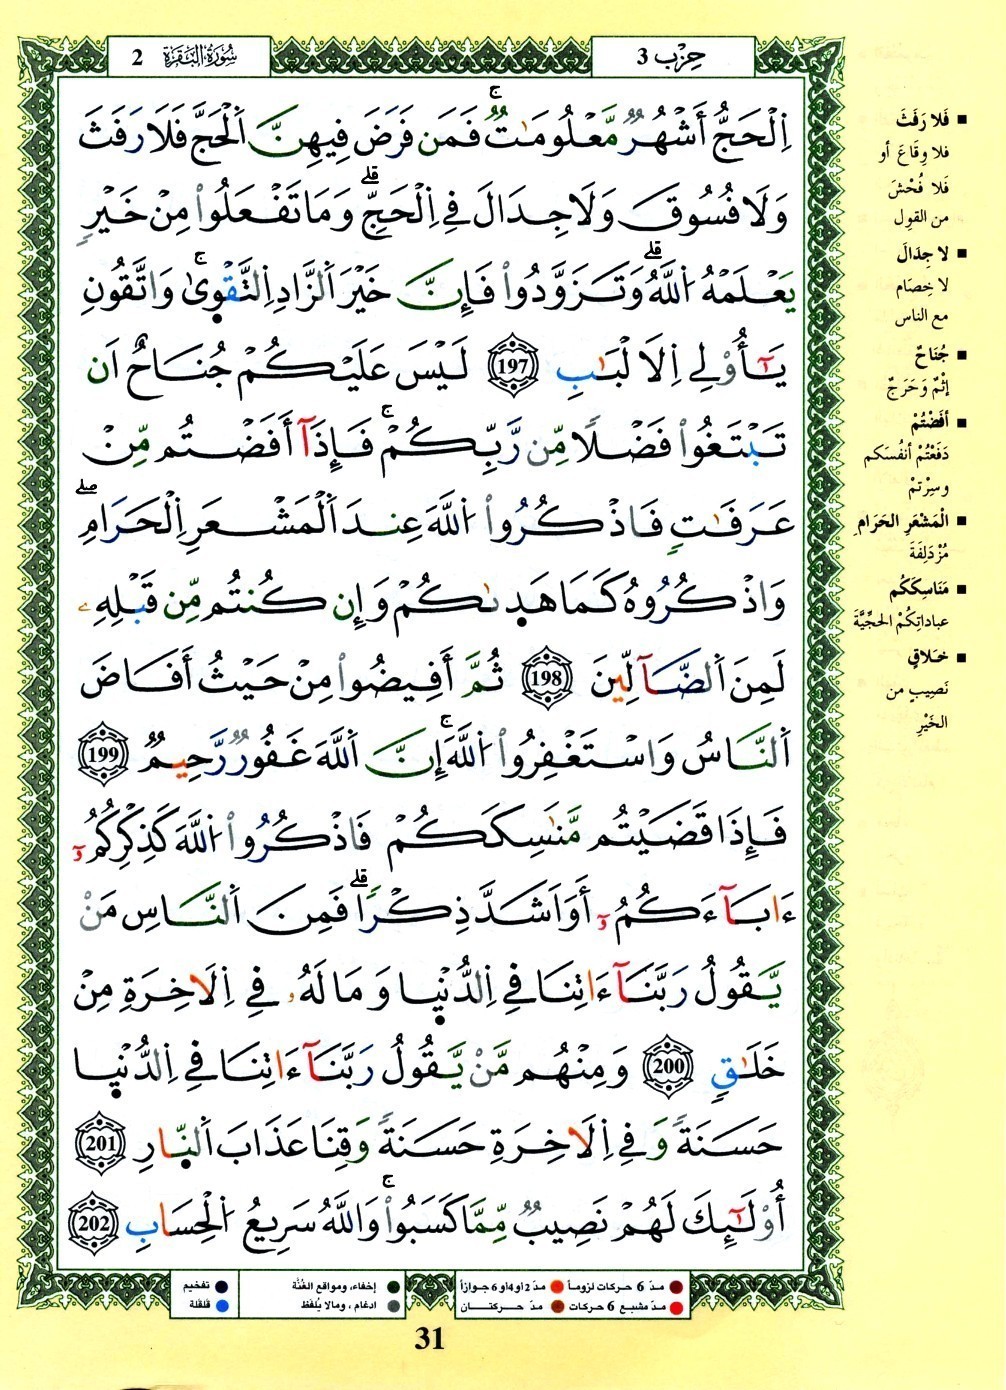 حِزْب 3
سُورَةُ البَقَرَةِ 2
اِ۬لْحَجُّ أَشْهُرٞ مَّعْلُومَٰتٞۖ فَمَن فَرَضَ فِيهِنَّ اَ۬لْحَجَّ فَلَا رَفَثَ
وَلَا فُسُوقَ وَلَا جِدَالَ فِے اِ۬لْحَجِّۖ وَمَا تَفْعَلُواْ مِنْ خَيْرٖ
يَعْلَمْهُ اُ۬للَّهُۖ وَتَزَوَّدُواْ فَإِنَّ خَيْرَ اَ۬لزَّادِ اِ۬لتَّقْو۪يٰۖ وَاتَّقُونِ
يَٰٓأُوْلِے اِ۬لَالْبَٰبِ 197 لَيْسَ عَلَيْكُمْ جُنَاحٌ اَن
تَبْتَغُواْ فَضْلاٗ مِّن رَّبِّكُمْۖ فَإِذَآ أَفَضْتُم مِّنْ
عَرَفَٰتٖ فَاذْكُرُواْ اُ۬للَّهَ عِندَ اَ۬لْمَشْعَرِ اِ۬لْحَرَامِۖ
وَاذْكُرُوهُ كَمَا هَد۪يٰكُمْ وَإِن كُنتُم مِّن قَبْلِهِۦ
لَمِنَ اَ۬لضَّآلِّينَ 198 ثُمَّ أَفِيضُواْ مِنْ حَيْثُ أَفَاضَ
اَ۬لنَّاسُ وَاسْتَغْفِرُواْ اُ۬للَّهَۖ إِنَّ اَ۬للَّهَ غَفُورٞ رَّحِيمٞ 199
فَإِذَا قَضَيْتُم مَّنَٰسِكَكُمْ فَاذْكُرُواْ اُ۬للَّهَ كَذِكْرِكُمُۥٓ
ءَابَآءَكُمُۥٓ أَوَ اَشَدَّ ذِكْراٗۖ فَمِنَ اَ۬لنَّاسِ مَنْ
يَّقُولُ رَبَّنَآ ءَاتِنَا فِے اِ۬لدُّنْي۪ا وَمَا لَهُۥ فِے اِ۬لَاخِرَةِ مِنْ
خَلَٰقٖ 200 وَمِنْهُم مَّنْ يَّقُولُ رَبَّنَآ ءَاتِنَا فِے اِ۬لدُّنْي۪ا
حَسَنَةٗ وَفِے اِ۬لَاخِرَةِ حَسَنَةٗ وَقِنَا عَذَابَ اَ۬لنّ۪ارِ 201
أُوْلَٰٓئِكَ لَهُمْ نَصِيبٞ مِّمَّا كَسَبُواْۖ وَاللَّهُ سَرِيعُ اُ۬لْحِسَابِ 202
■ فَلا رَفَثَ
فلا وِقَاعَ أو
فَلا فُحْشَ
من القولِ
■ لا جِدَالَ
لا خِصَام
مع الناس
■ جُنَاحٌ
إثْمٌ وَحَرَجٌ
■ أفَضْتُمْ
دَفَعْتُمْ أنْفُسَكم
وسِرْتمْ
■ الْمَشْعَرِ الحَرَامِ
مُزْدَلِفَة
■ مَنَاسِكَكُم
عباداتِكُمْ الحَجِّيَّةَ
■ خلَاقٍ
نَصِيبٍ من
الخَيْرِ
مدّ 6 حركات لزوماً ● مدّ 2 او 4 او 6 جوازاً
مدّ مشبع 6 حركات ● مدّ حركتان
إخفاء، ومواقع الغُنَّة ● تفخيم
ادغام، ومالا يُلفَظ ● قلقلة
31